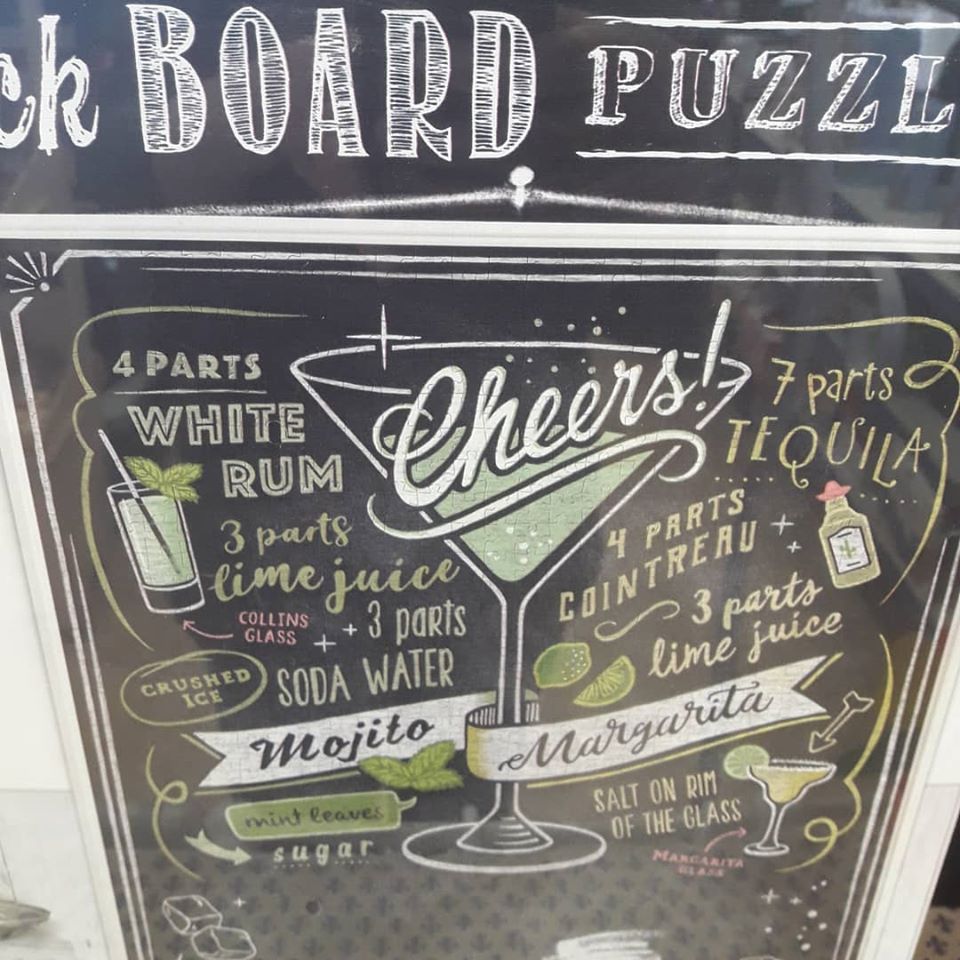 ck BOARD PUZZL
Cheers!
4 PARTS
WHITE
RUM
3 parts
lime juice
COLLINS
GLASS
+ +3 parts
SODA WATER
CRUSHED
ICE
Mojito
mint leaves
sugar
7 parts
TEQUILA
4 PARTS
COINTREAU
3 parts
lime juice
Margarita
SALT ON RIM
OF THE GLASS
MARGARITA
GLASS